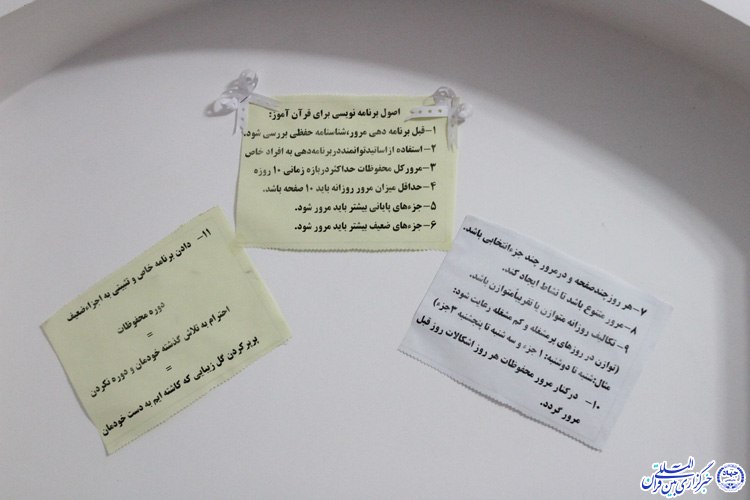 اصول برنامه نویسی برای قرآن آموز:
۱-قبل برنامه دهی مرور،شناسنامه حفظی بررسی شود.
۲-استفاده ازاساتیدتوانمنددربرنامه‌دهی به افراد خاص
۳-مرورکل محفوظات حداکثردربازه زمانی ۱۰ روزه
۴-حداقل میزان مرور روزانه باید ۱۰ صفحه باشد.
۵-جزء‌های پایانی بیشتر باید مرور شود.
۶-جزء‌های ضعیف بیشتر باید مرور شود.
۷-هر روزچندصفحه و درمرور چند جزءانتخابی باشد.
۸-مرور متنوع باشد تا نشاط ایجاد کند.
۹-تکالیف روزانه متوازن یا تقریباًمتوازن باشد.
(توازن در روزهای پرمشغله و کم مشغله رعایت شود:
مثال:شنبه تا دوشنبه: ۱ جزء و سه شنبه تا پنجشنبه ۳جزء)
۱۰- درکنار مرور محفوظات هر روز اشکالات روز قبل
مرور گردد.
۱۱- دادن برنامه خاص و تثبیتی به اجزاءضعیف
دوره محفوظات
=
احترام به تلاش گذشته خودمان و دوره نکردن
=
پرپرکردن گل زیبایی که کاشته ایم به دست خودمان
خبرگزاری بین المللی قرآن
جهاد